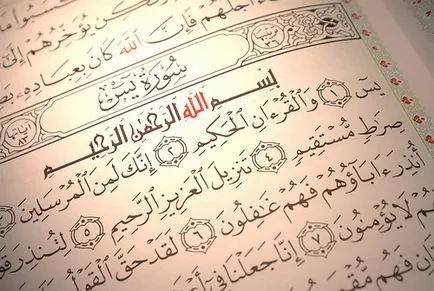 وَلَٰكِن يُؤَخِّرُهُمْ إِلَىٰ
أَجَلُهُمْ فَإِنَّ ٱللَّهَ كَانَ بِعِبَادِهِۦ
سُورَةُ يسٓ
بِسْمِ ٱللَّهِ ٱلرَّحْمَٰنِ ٱلرَّحِيمِ
يسٓ ١ وَٱلْقُرْءَانِ ٱلْحَكِيمِ ٢ إِنَّكَ لَمِنَ ٱلْمُرْسَلِينَ
صِرَٰطٍ مُّسْتَقِيمٍ ٤ تَنزِيلَ ٱلْعَزِيزِ ٱلرَّحِيمِ ٥ لِتُنذِرَ
أُنذِرَ ءَابَآؤُهُمْ فَهُمْ غَٰفِلُونَ ٦ لَقَدْ حَقَّ ٱلْقَوْلُ
لَا يُؤْمِنُونَ ٧ إِنَّا جَعَلْنَا فِىٓ
فَهُم